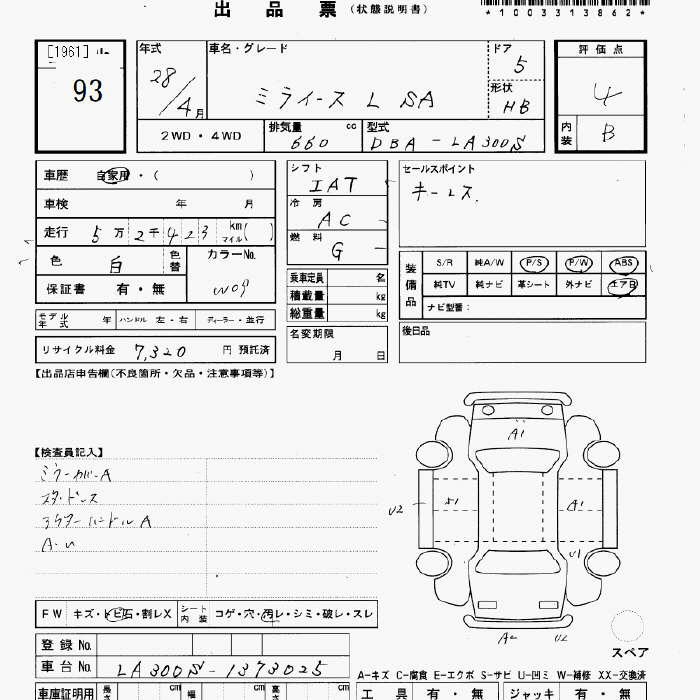 出 品 票 (状態説明書)
*1003313862*
[1961]
93
年式 車名・グレード ドア 評価点
28/4月 ミライース L SA 5 4
形状 HB
2WD・4WD 排気量 cc 660 型式 DBA-LA300S 内装 B
車歴 自家用・( )
車検 年 月
走行 5万2千423 km マイル( )
色 白 色替 カラーNo. W09
保証書 有・無
モデル年式 年 ハンドル 左・右 ディーラー・並行
リサイクル料金 7,320 円 預託済
シフト IAT
冷房 AC
燃料 G
乗車定員 名
積載量 kg
総重量 kg
名変期限 月 日
セールスポイント
キーレス.
装備品 S/R 純A/W P/S P/W ABS
純TV 純ナビ 革シート 外ナビ エアB
ナビ型番:
後日品
【出品店申告欄(不良箇所・欠品・注意事項等)】
【検査員記入】
ミラーカバーA
スタッドレス
アウターハンドルA
A・U
A1
U2 A1
U1
A2 U2
スペア
FW キズ・トビ石・割レX シート内装 コゲ・穴・汚レ・シミ・破レ・スレ
登録 No.
車台 No. LA300S-1373025
A-キズ C-腐食 E-エクボ S-サビ U-凹ミ W-補修 XX-交換済
車庫証明用 長さ cm 幅 cm 高さ cm 工具 有・無 ジャッキ 有・無